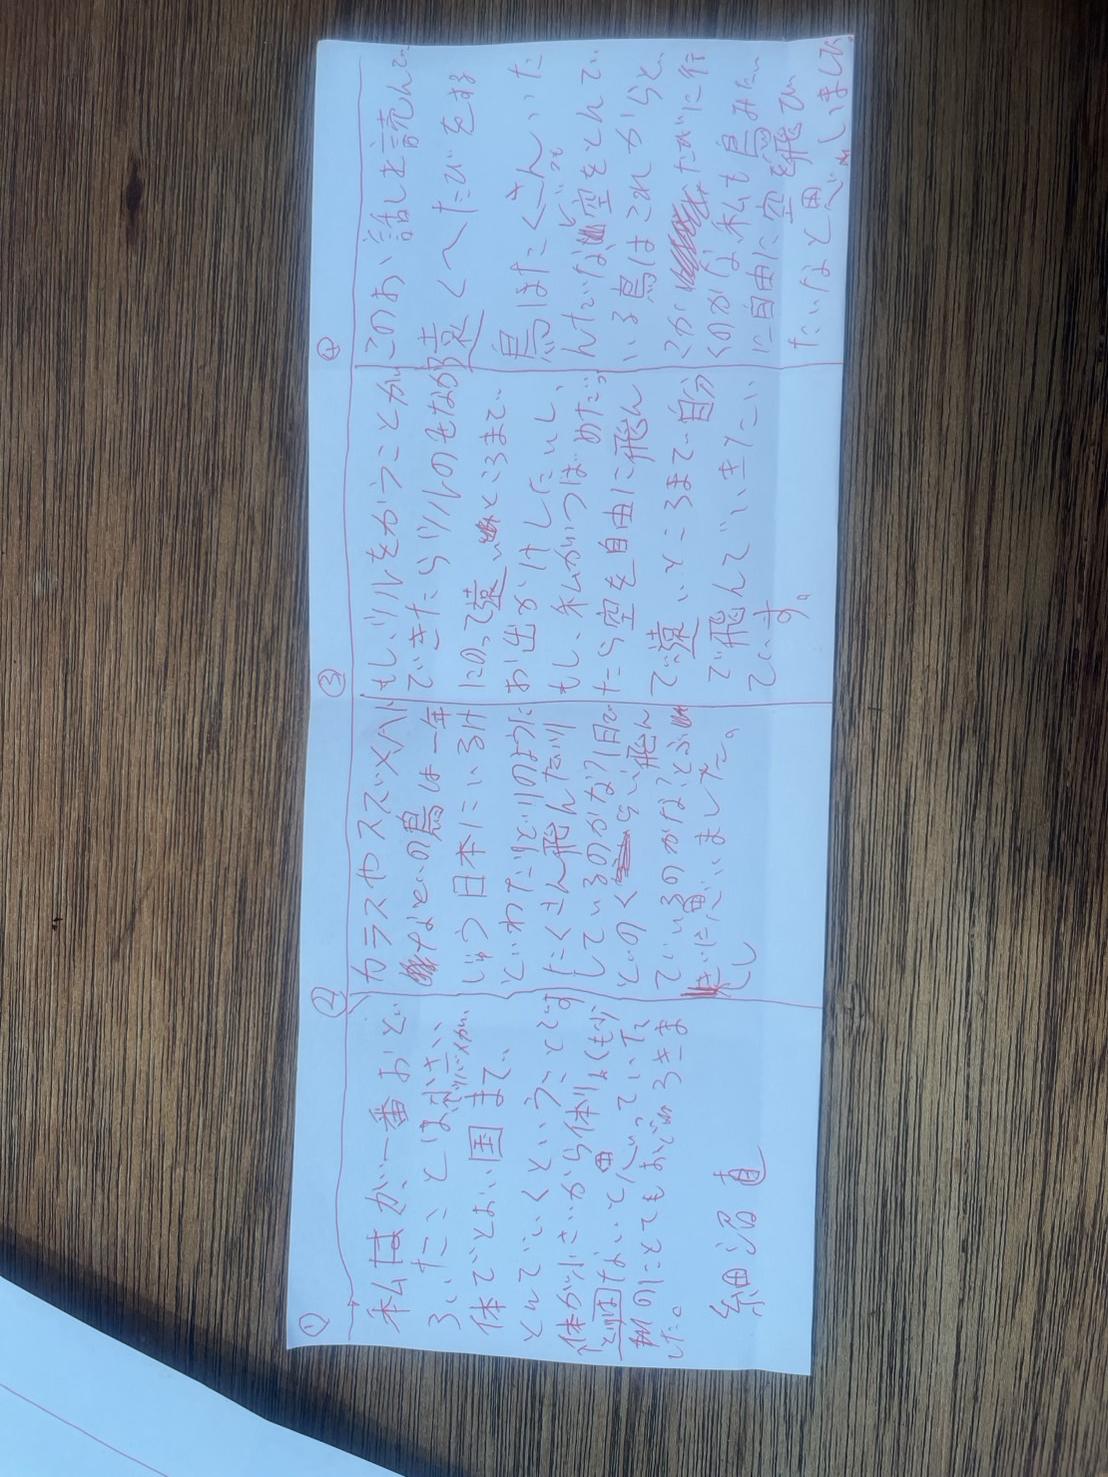 ①
私はが、一番おど
ろいたことは小さい
体でとおい国まで、
とんでいくということです
体が小さいから体りょくもぶ
なのにとてもおどろきま
した。
細沼 直
②
カラスやスズメ、ハト
などの鳥は一年
じゅう日本にいるけ
どわたりどりのように
たくさん飛んだり
しているのかな?1日で
どのくらい飛ん
でいるのかな?とふ
しぎに思いました。
③
もし、ツルをかうことが
できたらツルのせなか
にのって遠いところまで、
お出かけしたいし、
もし、私がつばめだっ
たら空を自由に飛ん
で遠いところまで自分
で飛んでいきたい
です。
④
このお話しを読んで
遠くへたびをする
鳥はたくさんいた
んでいな空をとんで
いる鳥はこれからど
こかたびに行
くのかな私も鳥みたい
に自由に空を飛び
たいなと思いました